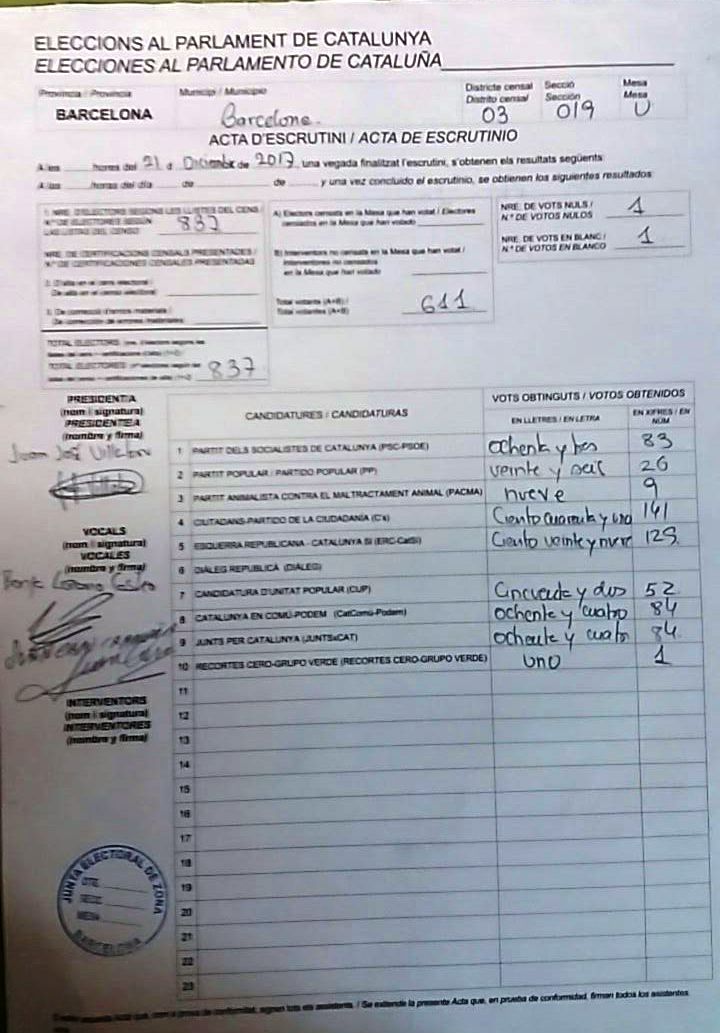 ELECCIONS AL PARLAMENT DE CATALUNYA
ELECCIONES AL PARLAMENTO DE CATALUÑA
Província / Provincia
BARCELONA
Municipi / Municipio
Barcelona.
Districte censal
Distrito censal
03
Secció
Sección
019
Mesa
Mesa
U
ACTA D'ESCRUTINI / ACTA DE ESCRUTINIO
A les hores del 21 d Diciembre de 2017, una vegada finalitzat l'escrutini, s'obtenen els resultats següents:
A las horas del día de de y una vez concluido el escrutinio, se obtienen los siguientes resultados:
1. NRE. D'ELECTORS SEGONS LES LLISTES DEL CENS /
N.º DE ELECTORES SEGÚN
LAS LISTAS DEL CENSO
837
NRE. DE CERTIFICACIONS CENSALS PRESENTADES /
N.º DE CERTIFICACIONES CENSALES PRESENTADAS
2. D'alta en el cens electoral /
De alta en el censo electoral
3. De correcció d'errors materials /
De corrección de errores materiales
TOTAL ELECTORS
TOTAL ELECTORES
837
A) Electors censats en la Mesa que han votat / Electores
censados en la Mesa que han votado
B) Interventors no censats en la Mesa que han votat /
Interventores no censados
en la Mesa que han votado
Total votants (A+B) /
Total votantes (A+B)
611
NRE. DE VOTS NULS /
N.º DE VOTOS NULOS
1
NRE. DE VOTS EN BLANC /
N.º DE VOTOS EN BLANCO
1
PRESIDENT/A
(nom i signatura)
PRESIDENTE/A
(nombre y firma)
VOCALS
(nom i signatura)
VOCALES
(nombre y firma)
INTERVENTORS
(nom i signatura)
INTERVENTORES
(nombre y firma)
CANDIDATURES / CANDIDATURAS
VOTS OBTINGUTS / VOTOS OBTENIDOS
EN LLETRES / EN LETRA
EN XIFRES / EN NÚM
1 PARTIT DELS SOCIALISTES DE CATALUNYA (PSC-PSOE) ochenta y tres 83
2 PARTIT POPULAR / PARTIDO POPULAR (PP) veinte y seis 26
3 PARTIT ANIMALISTA CONTRA EL MALTRACTAMENT ANIMAL (PACMA) nueve 9
4 CIUTADANS-PARTIDO DE LA CIUDADANÍA (C's) Ciento cuarenta y uno 141
5 ESQUERRA REPUBLICANA - CATALUNYA SÍ (ERC-CatSí) Ciento veinte y nueve 129
6 DIÀLEG REPUBLICÀ (DIÀLEG)
7 CANDIDATURA D'UNITAT POPULAR (CUP) Cincuenta y dos 52
8 CATALUNYA EN COMÚ-PODEM (CatComú-Podem) ochenta y cuatro 84
9 JUNTS PER CATALUNYA (JUNTSxCAT) ochenta y cuatro 84
10 RECORTES CERO-GRUPO VERDE (RECORTES CERO-GRUPO VERDE) uno 1
11
12
13
14
15
16
17
18
19
20
21
22
23
JUNTA ELECTORAL DE ZONA
DTE.
SECC.
MESA
BARCELONA
que, com a prova de conformitat, signen tots els assistents. / Se extiende la presente Acta que, en prueba de conformidad, firman todos los asistentes.